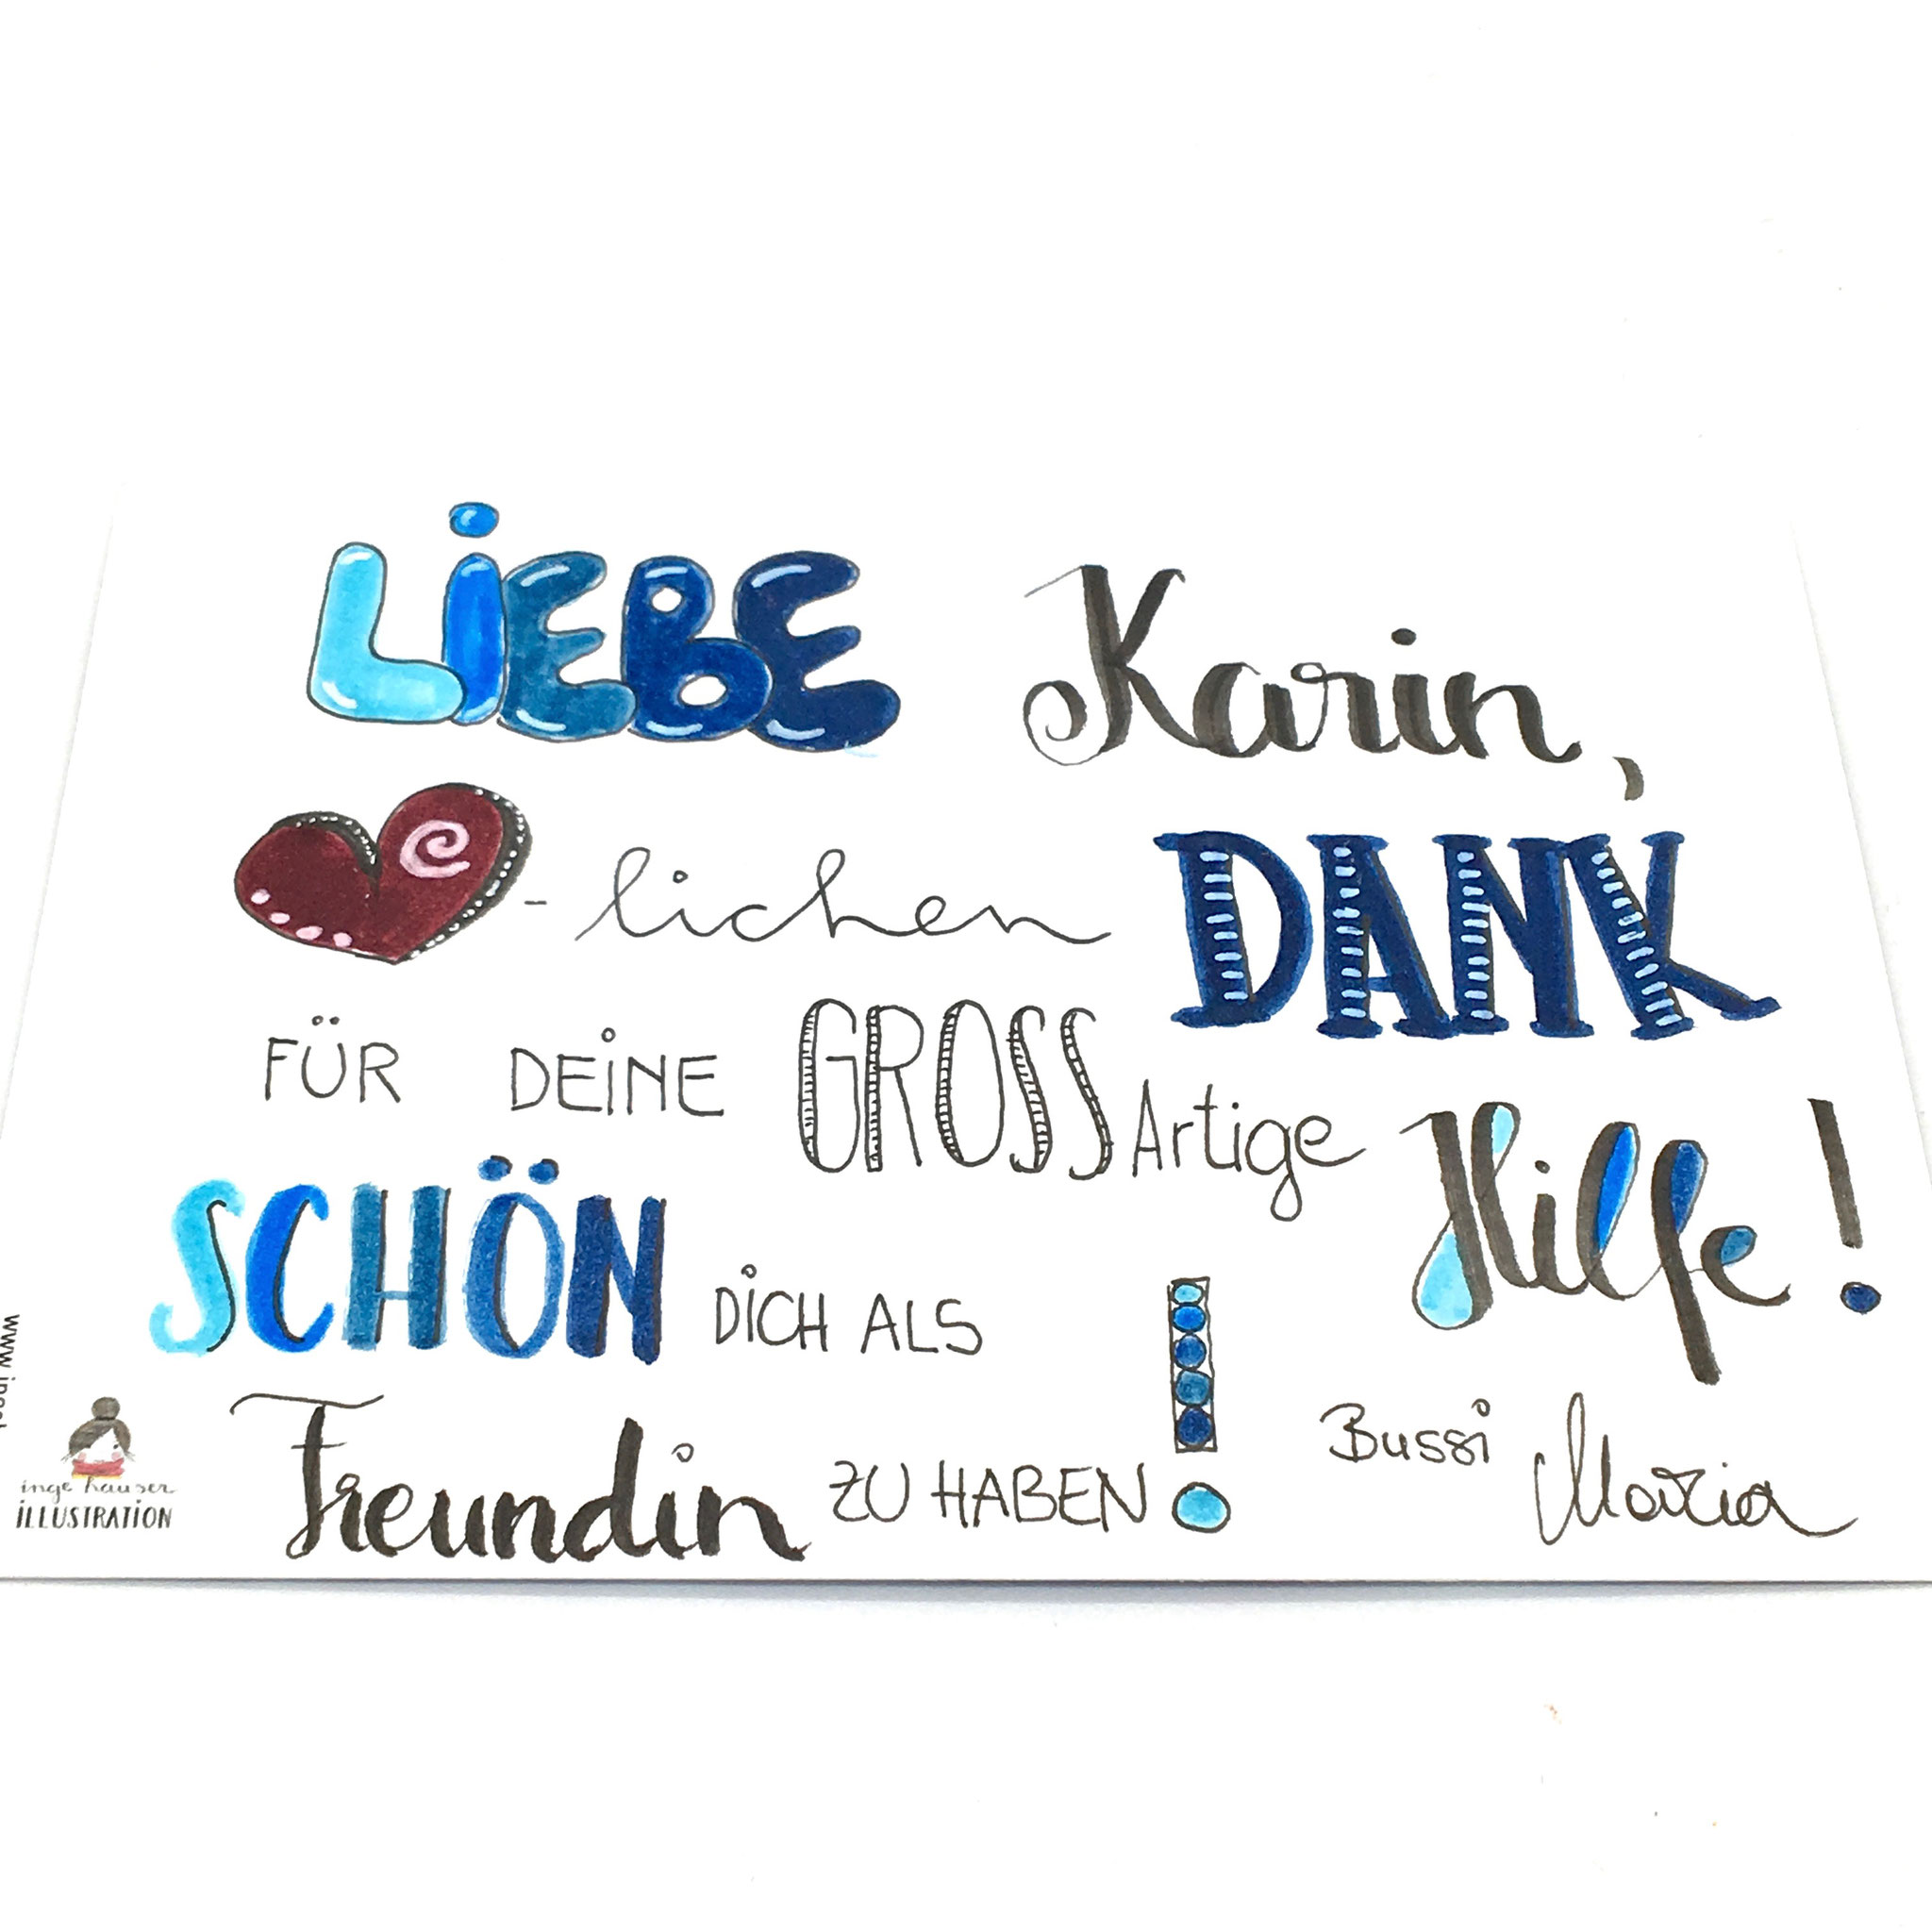 LiEBE Karin,
-lichen DANK
FÜR DEiNE GROSSArtige Hilfe!
SCHÖN DiCH ALS
Freundin ZU HABEN!
Bussi Maria
inge hauser
iLLUSTRATiON